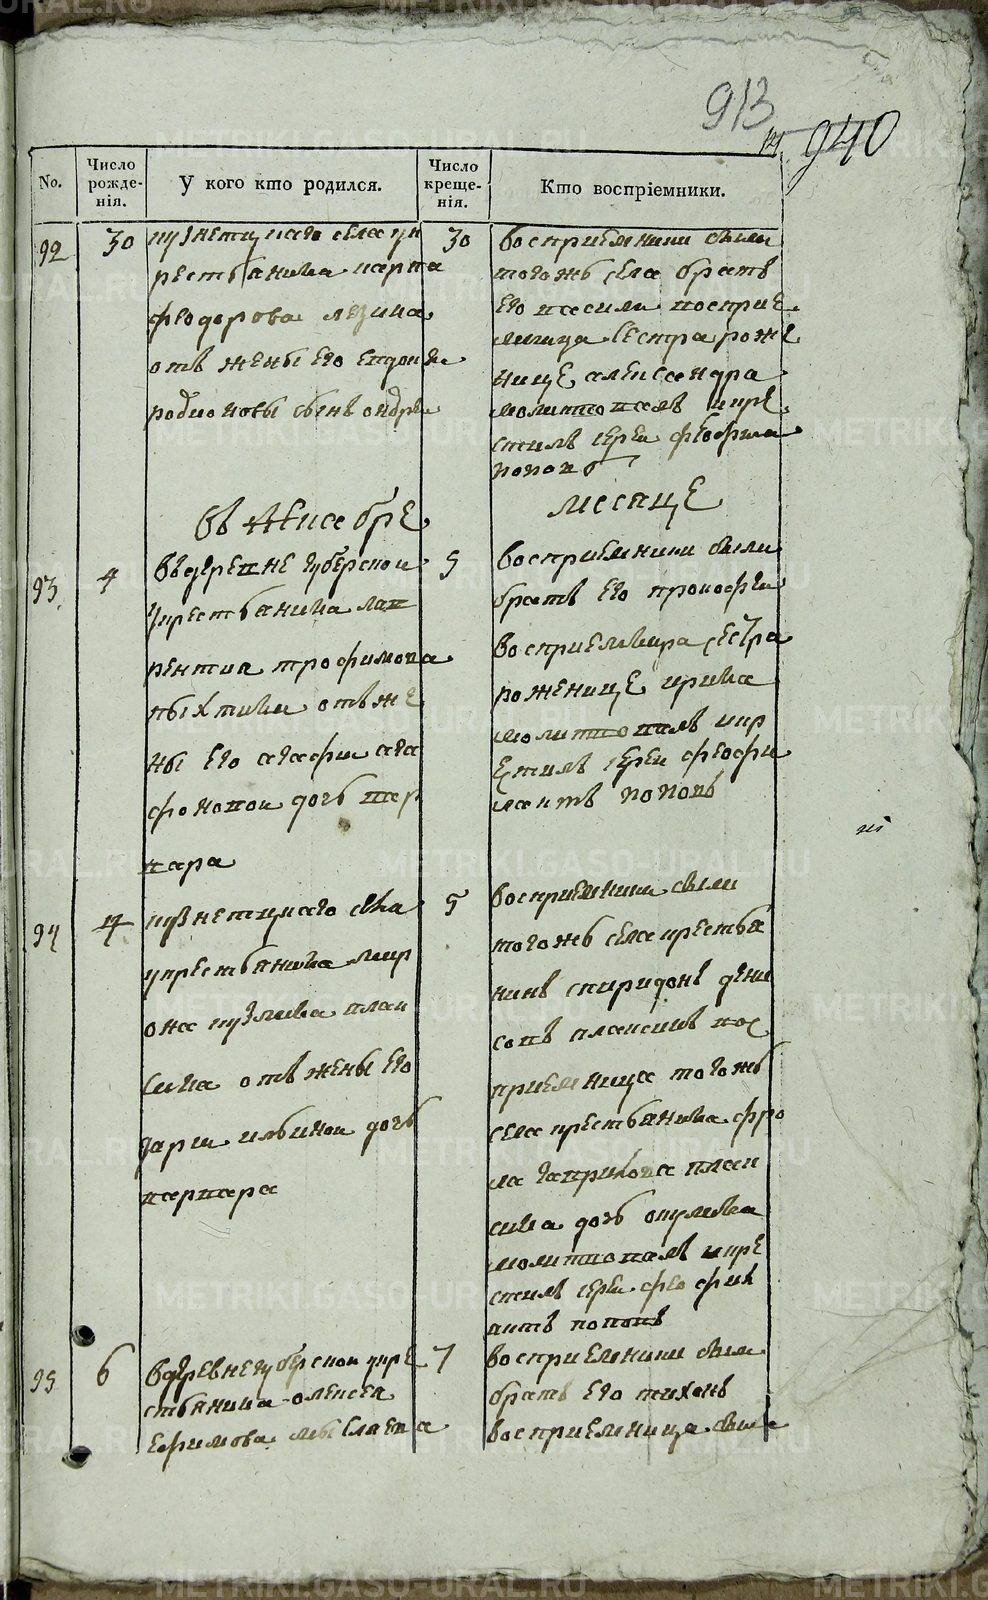 913
940
No.
Число рожденія.
У кого кто родился.
Число крещенія.
Кто воспріемники.
92
30
кузнецкаго села у к
рестьянина карпа
феодорова
отъ жены его евдокеи
родионовы сынъ андреи
30
восприемники были
тогожъ села братъ
его василеи восприе
мница сестра роже
нице александра
молитвовалъ и кре
стилъ иереи феофила
попов
въ декабре
месяце
93
4
въ деревне губерскои
у крестьянина лав
рентия трофимова
отъ же
ны его агафи ага
фоновои дочь вар
вара
5
восприемники были
братъ его прокофеи
восприемница сестра
роженице ирина
молитвовалъ и кр
естилъ иереи феофи
лактъ поповъ
94
4
кузнецкаго села
у крестьянина мир
она кузмина плак
сина отъ жены его
дарии ильинои дочь
варвара
5
восприемники были
тогожъ села крестья
нинъ спиридонъ дени
совъ плаксинъ вос
приемница тогожъ
села крестьянина фро
ла гаврилова плак
сина дочь акулина
молитвовалъ и кре
стилъ иереи феофил
актъ поповъ
95
6
в деревне губерскои у кре
стьянина алексея
ефимова мыслаева
7
восприемники были
братъ его тихонъ
восприемница была
METRIKI.GASO-URAL.RU